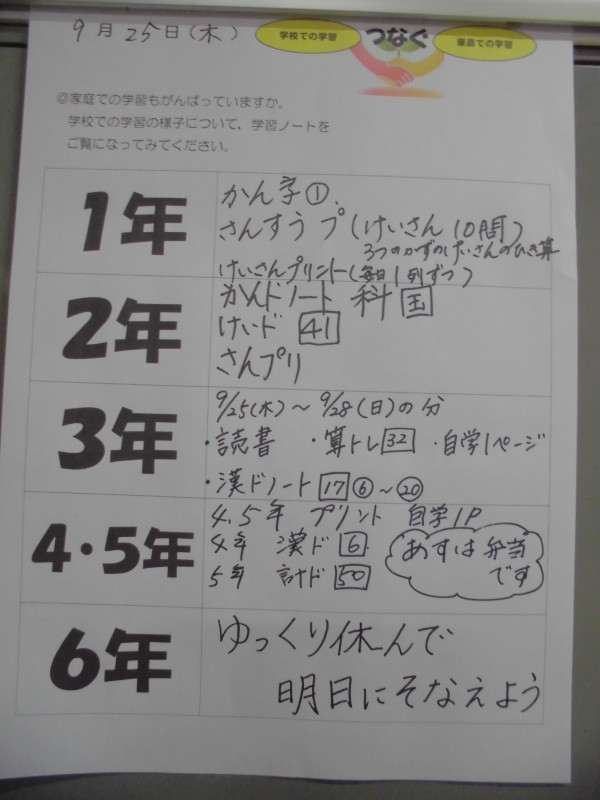 9月25日(木)
学校での学習
つなぐ
家庭での学習
◎家庭での学習もがんばっていますか。
学校での学習の様子について、学習ノートを
ご覧になってみてください。
1年
かん字①.
さんすう プ(けいさん10問)
3つのかずのけいさんのひき算
けいさんプリント(毎日1列ずつ)
2年
かんドノート 科 国
けいド 41
さんプリ
3年
9/25(木)～9/28(日)の分
・読書 ・算トレ32 ・自学1ページ
・漢ドノート 17 ⑥～⑳
4・5年
4.5年 プリント 自学1P
4年 漢ド 6
5年 計ド 50
あすは弁当
です
6年
ゆっくり休んで
明日にそなえよう